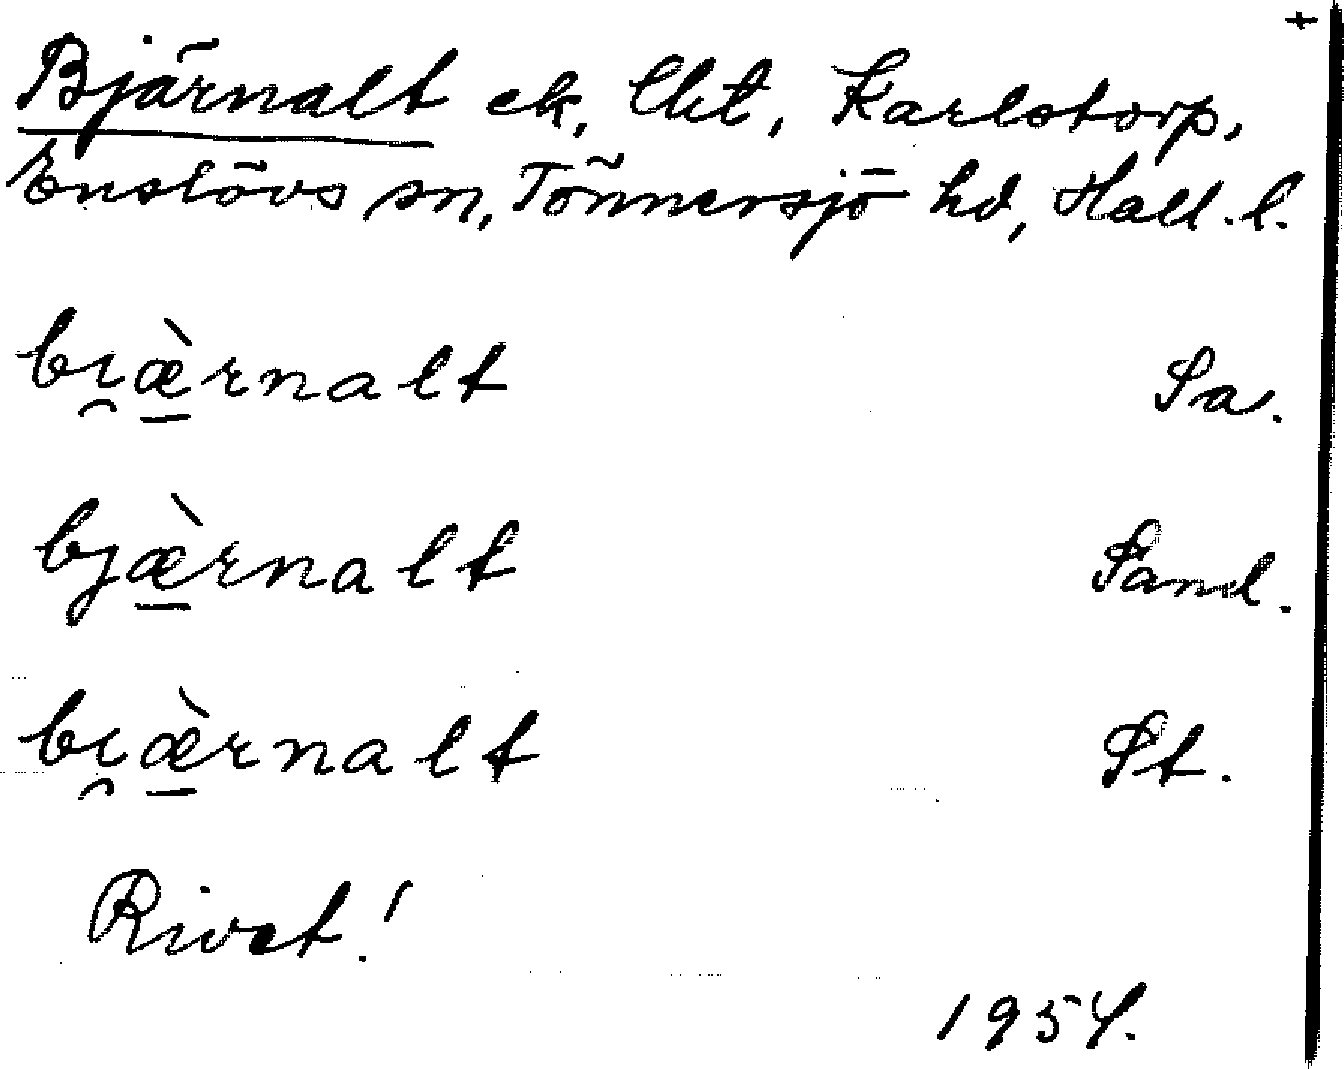 +
Bjärnalt ek, lht, Karlstorp,
Enslövs sn, Tönnersjö hd, Hall. l.
bi̯æ̠̀rnalt Sa.
bjæ̠̀rnalt Sand.
bi̯æ̠̀rnalt St.
Rivet!
1954.